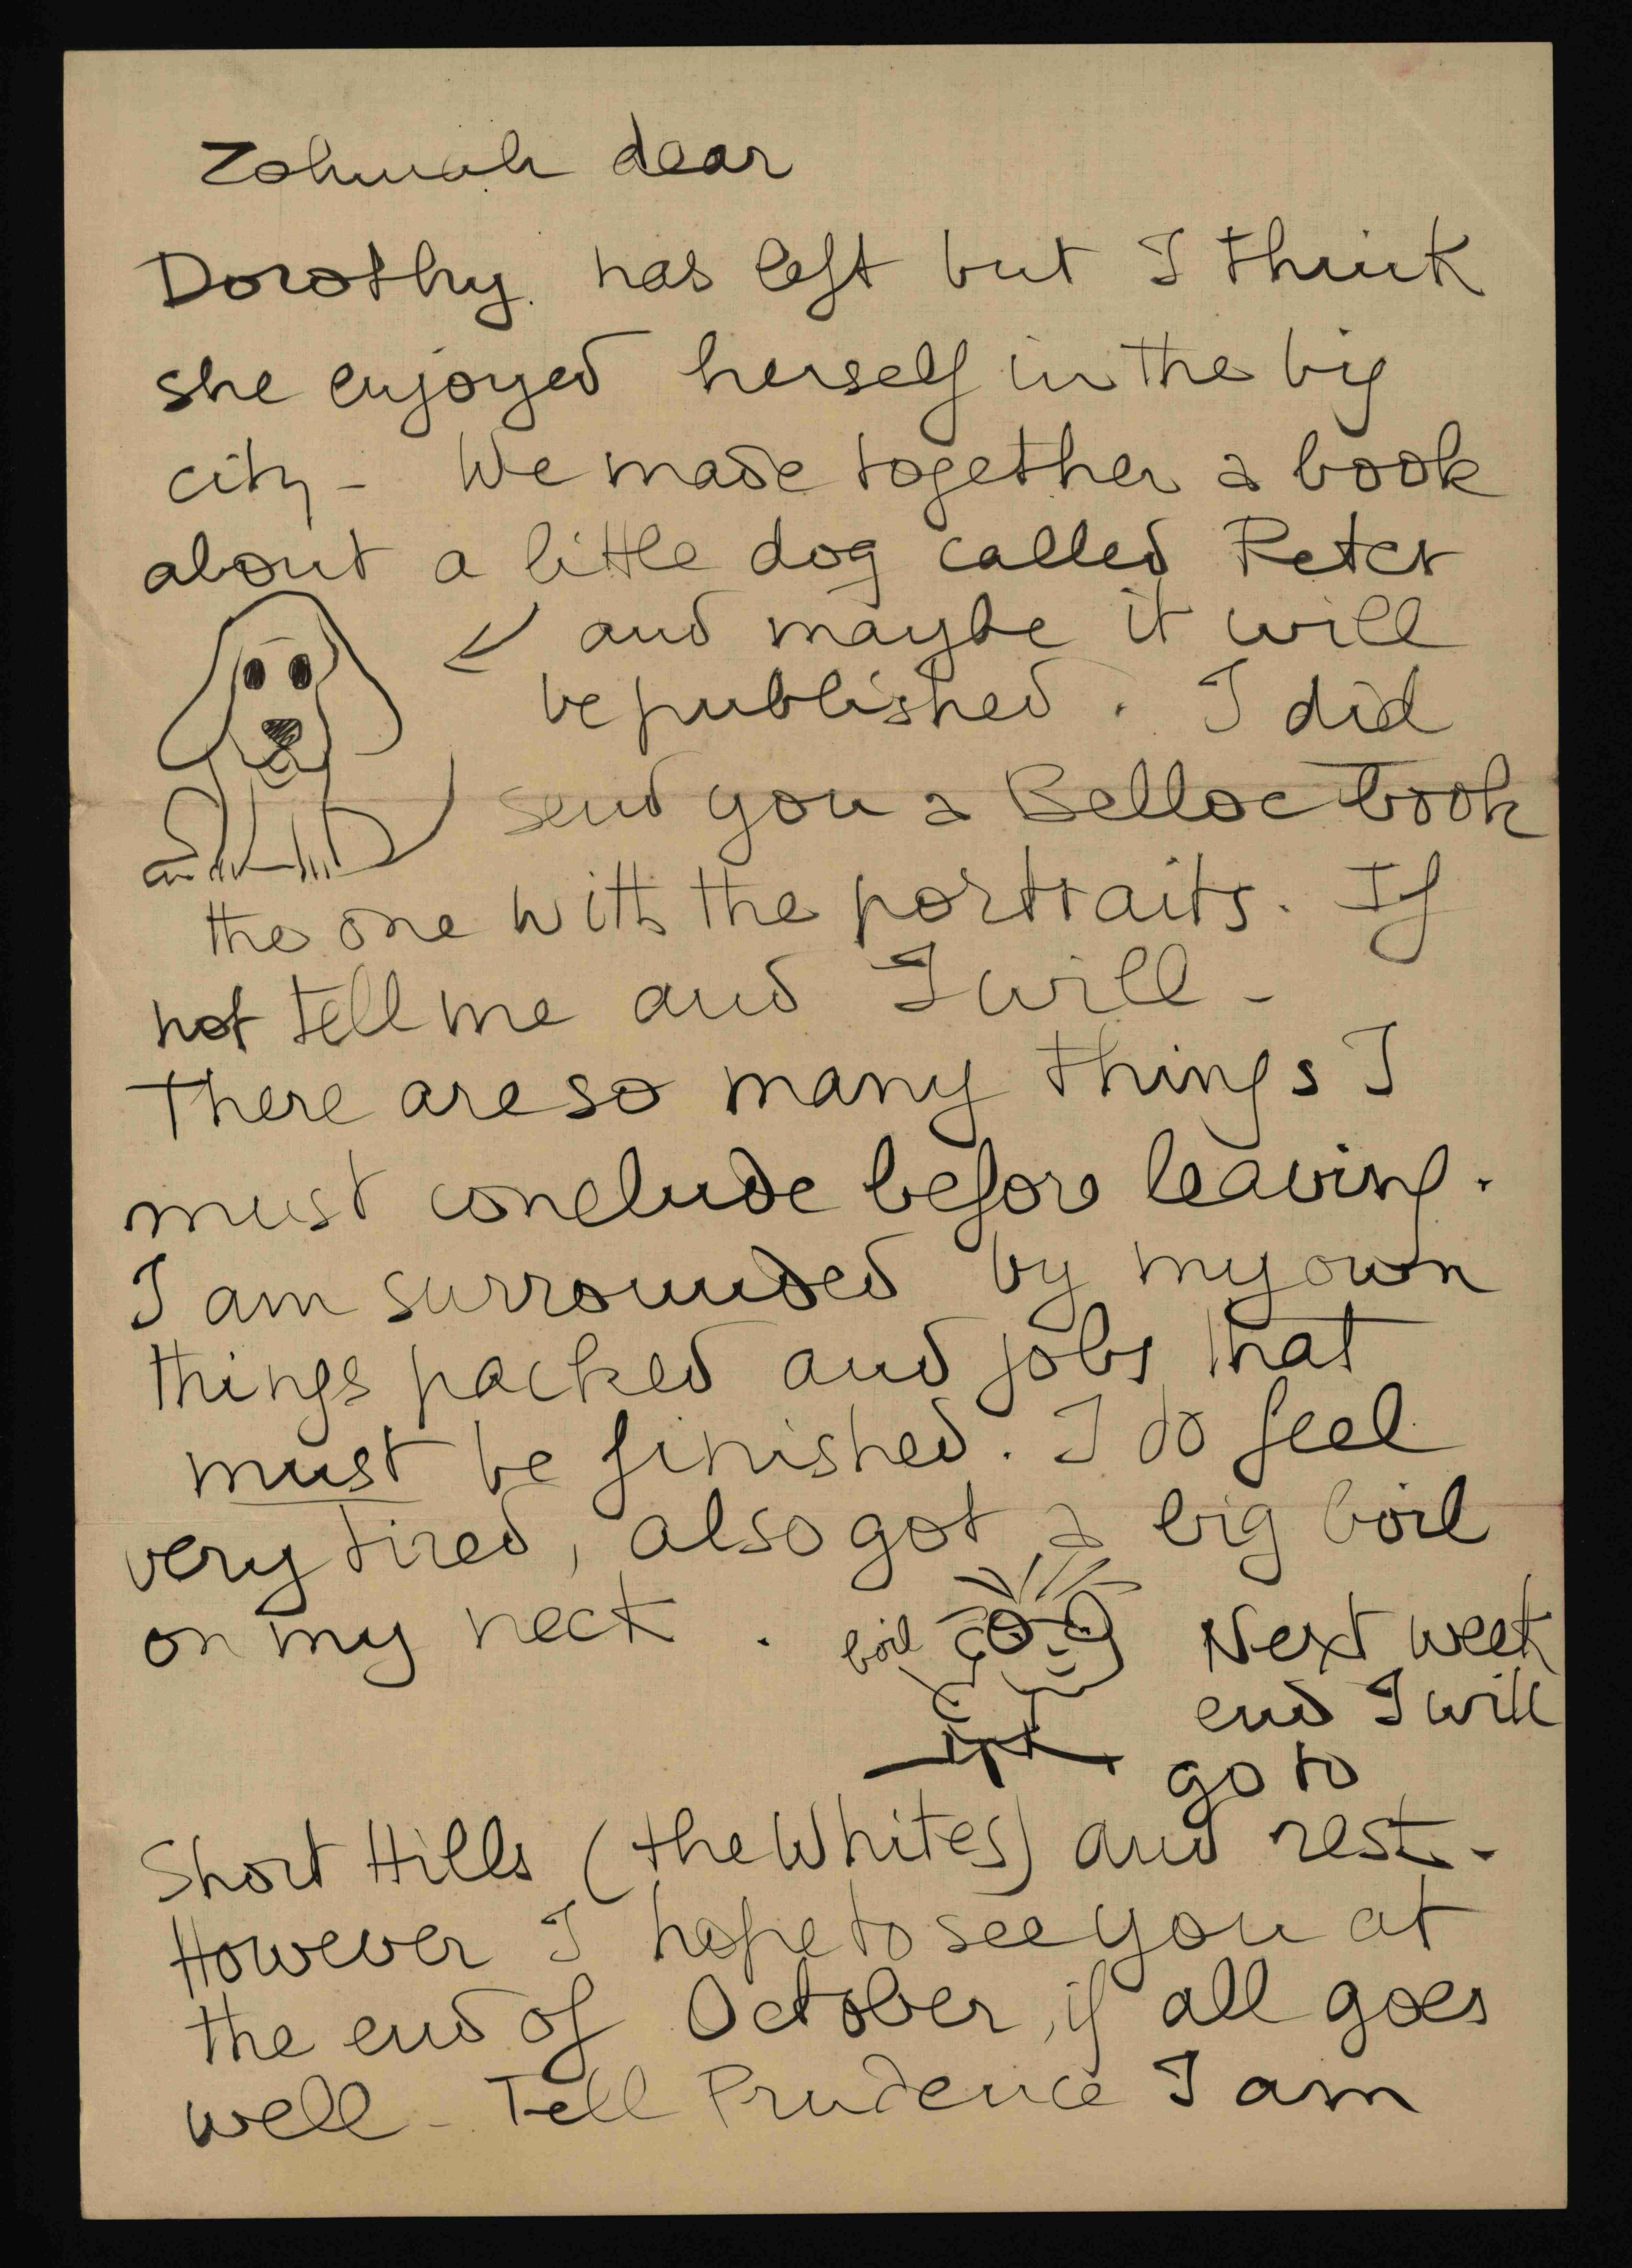 Zohmah dear
Dorothy has left but I think
she enjoyed herself in the big
city - We made together a book
about a little dog called Peter
and maybe it will
be published. I did
send you a Belloc book
the one with the portraits. If
not tell me and I will -
There are so many things I
must conclude before leaving.
I am surrounded by my own
things packed and jobs that
must be finished. I do feel
very tired, also got a big boil
on my neck.
boil
Next week
end I will
go to
Short Hills (the Whites) and rest.
However I hope to see you at
the end of October, if all goes
well - Tell Prudence I am